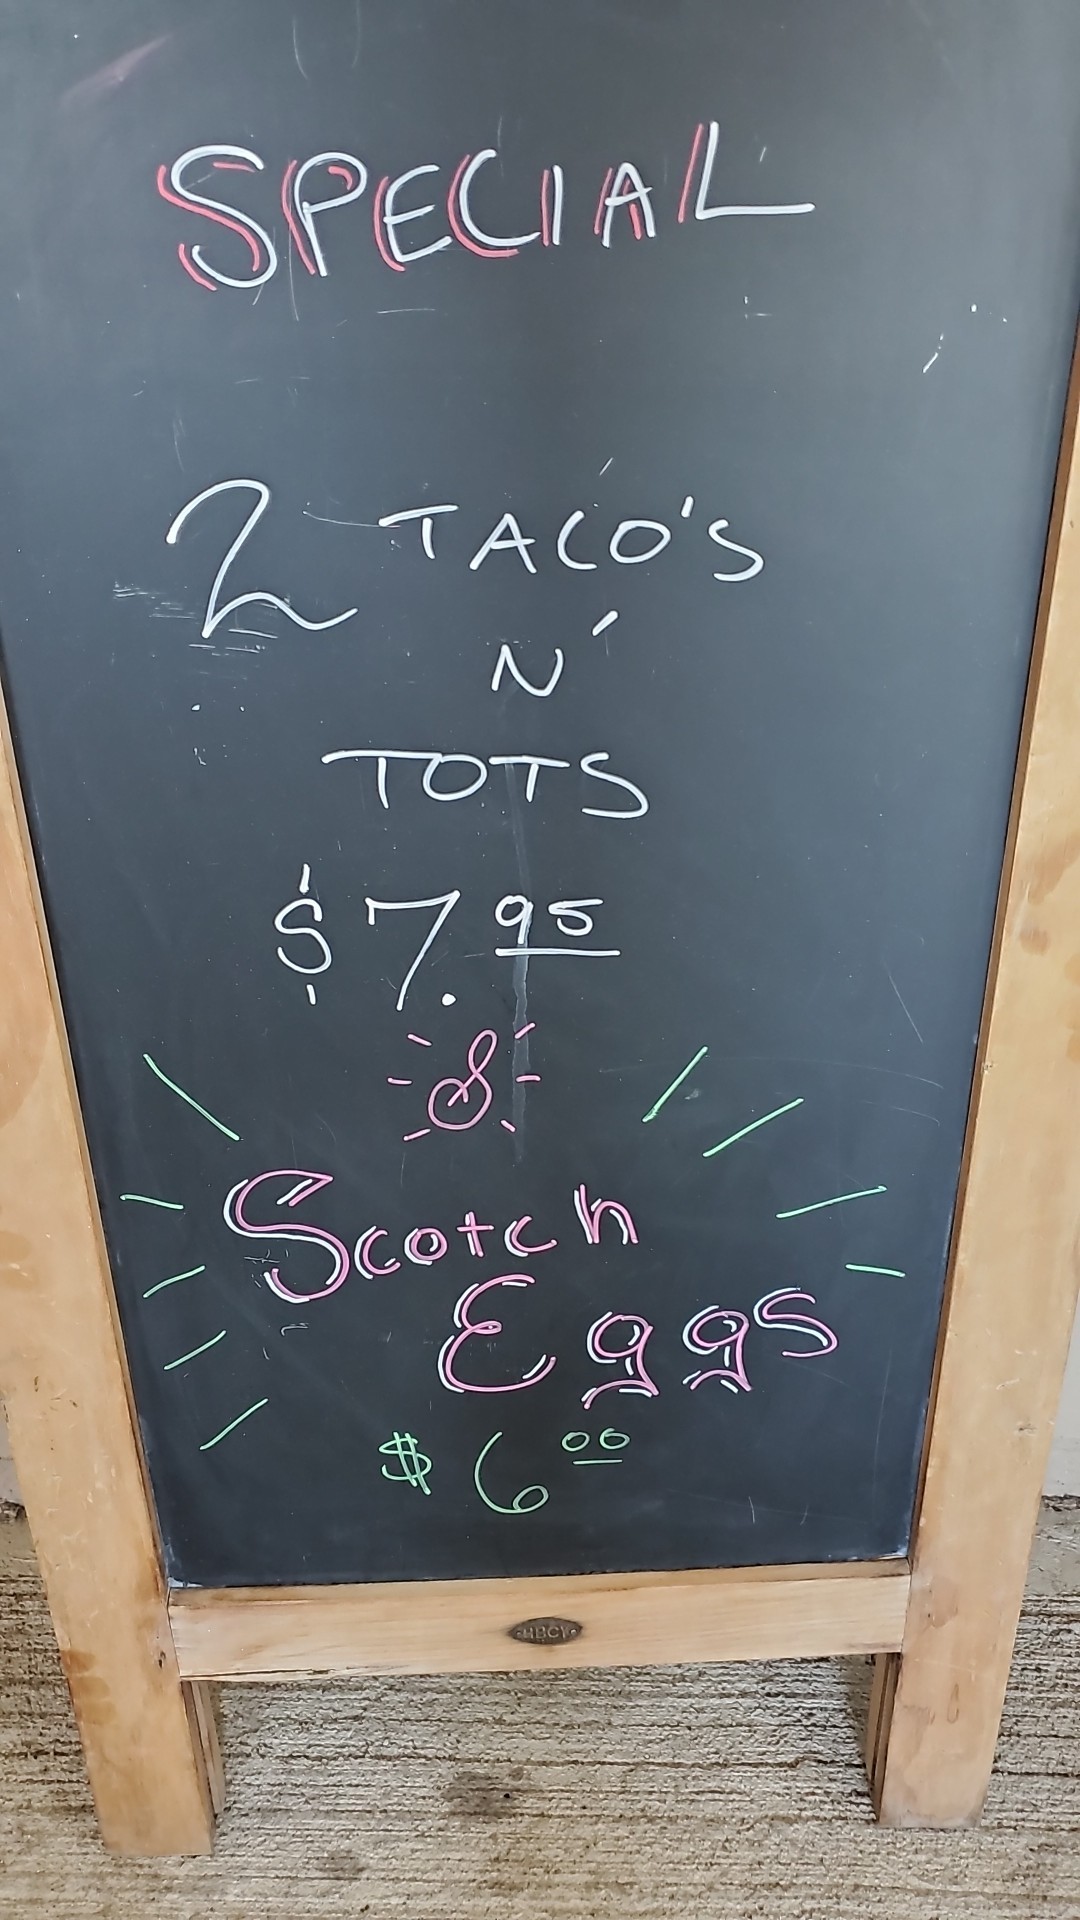 SPECIAL
2 TACO'S
N'
TOTS
$7.95
&
Scotch
Eggs
$6 00
HBCY